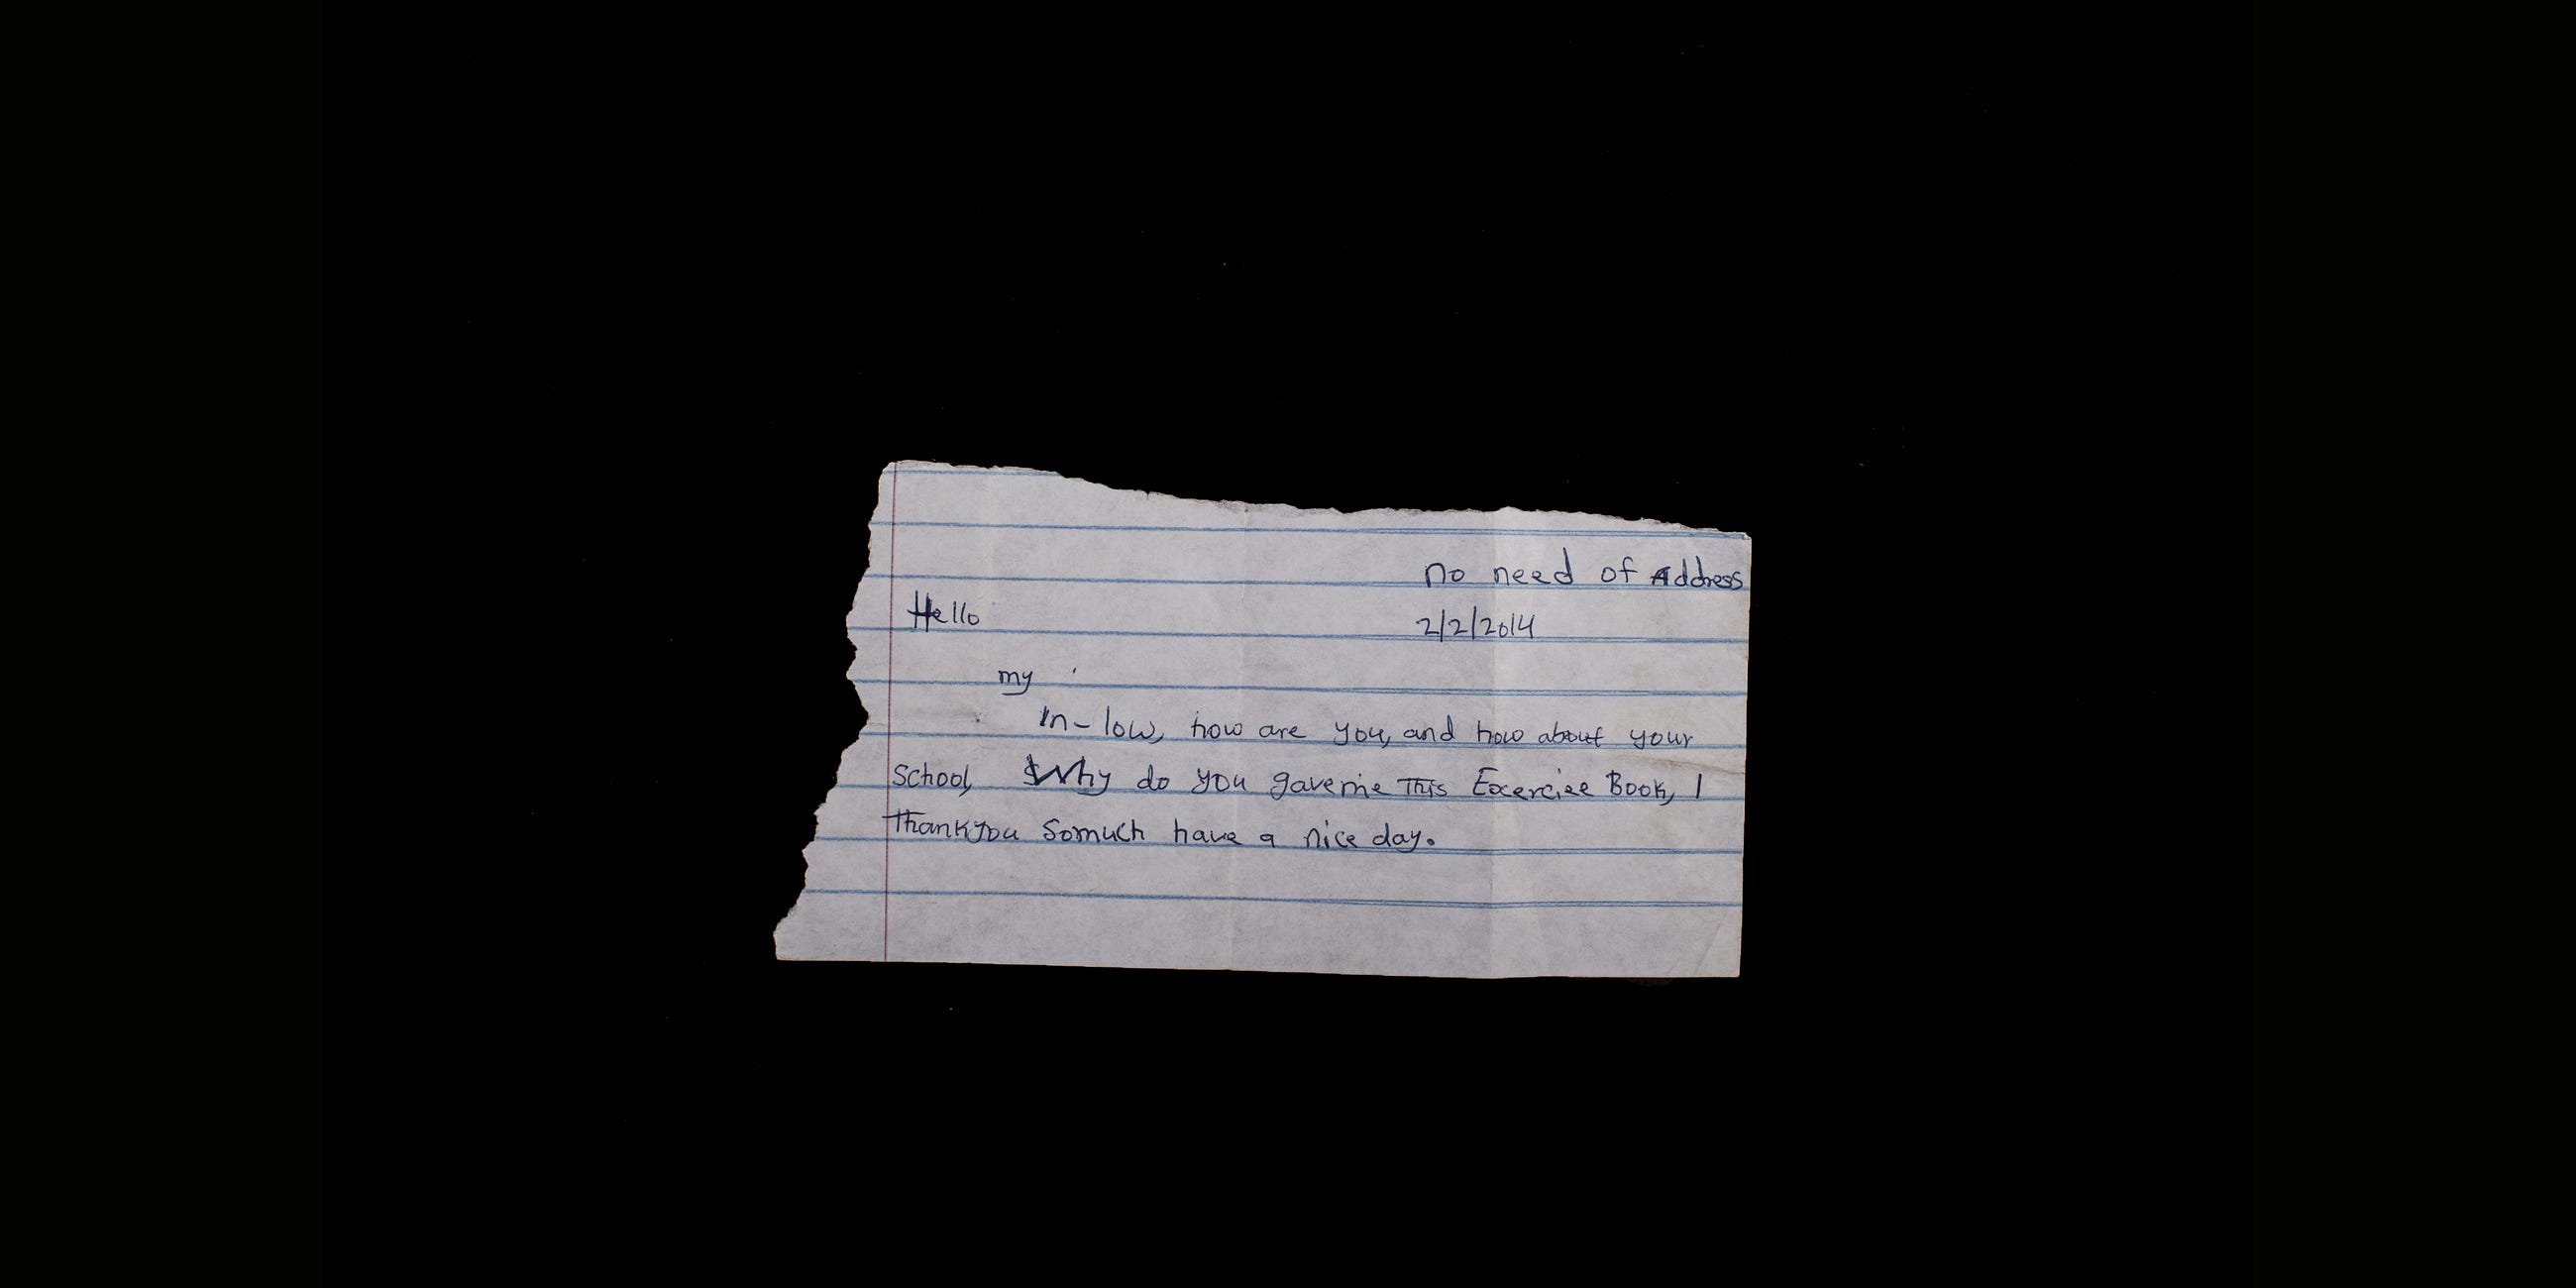 no need of Address
Hello 2/2/2014
my
In-low, how are you, and how about your
School, Why do you gaveme This Excercise Book, I
Thankyou Somuch have a nice day.